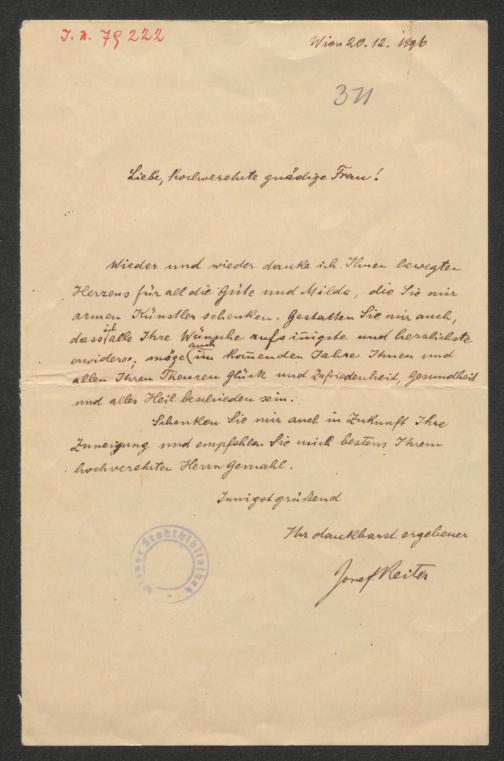 I. N. 79222
Wien 20. 12. 1896
371
Liebe, hochverehrte gnädige Frau!
Wieder und wieder danke ich Ihnen bewegten
Herzens für all die Güte und Milde, die Sie mir
armen Künstler schenken. Gestatten Sie mir auch,
dass ich alle Ihre Wünsche aufs innigste und herzlichste
erwidere; möge auch im kommenden Jahre Ihnen und
allen Ihren Theuren Glück und Zufriedenheit, Gesundheit
und alles Heil beschieden sein.
Schenken Sie mir auch in Zukunft Ihre
Zuneigung und empfehlen Sie mich bestens Ihrem
hochverehrten Herrn Gemahl.
Innigst grüßend
Ihr dankbarst ergebener
Josef Reiter
Wiener Stadtbibliothek